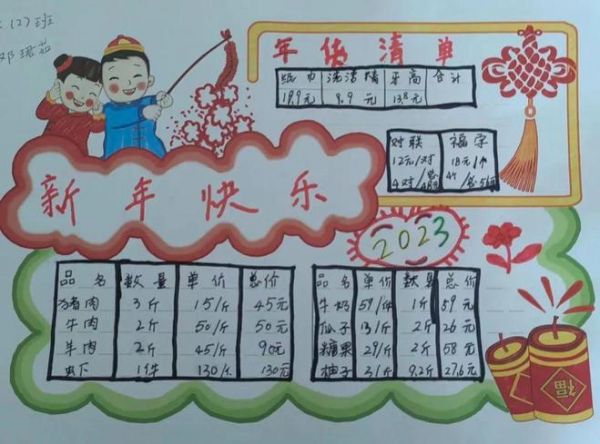 (2)班
年货清单
纸巾 洗洁精 牙膏 合计
19.9元 9.9元 13.8元
对联 福字
12元/对 18元/个
4对/
新年快乐
2023
品名 数量 单价 总价
猪肉 3斤 15/斤 45元
牛肉 2斤 50/斤 50元
羊肉 2斤 45/斤 90元
虾 1件 130/斤 130元
品名 单价 数量 总价
牛奶 59/件 1斤 59元
瓜子 13/斤 2斤 26元
糖果 29/斤 2斤 58元
柚子 3/斤 9.2斤 27.6元
福